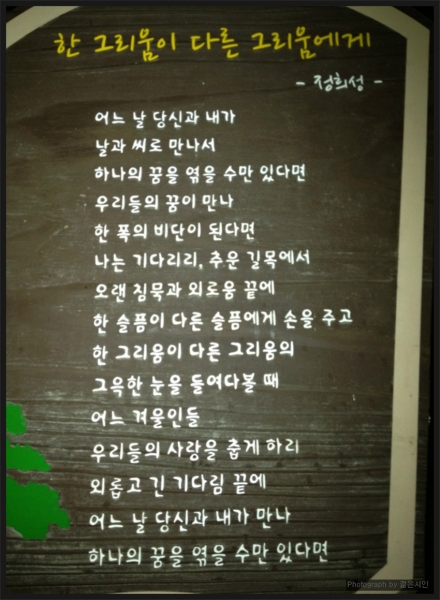 한 그리움이 다른 그리움에게
- 정희성 -
어느 날 당신과 내가
날과 씨로 만나서
하나의 꿈을 엮을 수만 있다면
우리들의 꿈이 만나
한 폭의 비단이 된다면
나는 기다리리, 추운 길목에서
오랜 침묵과 외로움 끝에
한 슬픔이 다른 슬픔에게 손을 주고
한 그리움이 다른 그리움의
그윽한 눈을 들여다볼 때
어느 겨울인들
우리들의 사랑을 춥게 하리
외롭고 긴 기다림 끝에
어느 날 당신과 내가 만나
하나의 꿈을 엮을 수만 있다면
Photograph by 젊은시인